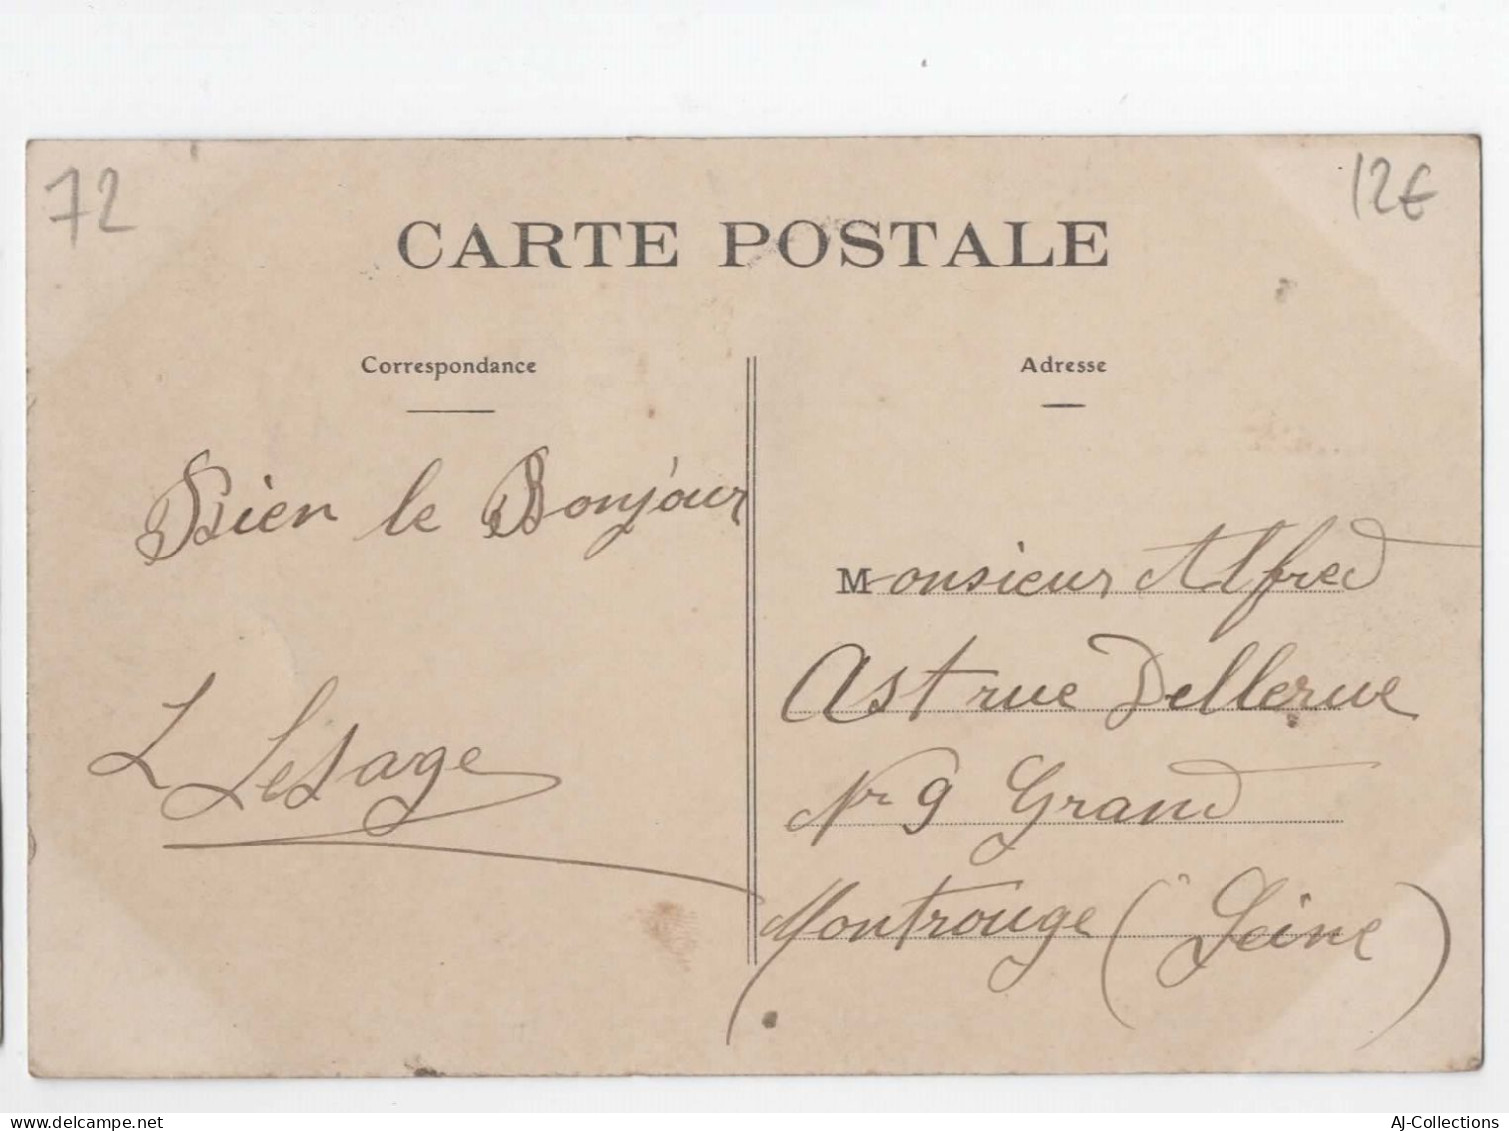 72
12€
CARTE POSTALE
Correspondance
Adresse
Bien le Bonjour
L Lesage
Monsieur Alfred
Ast rue Dellerue
Nr 9 Grand
Montrouge (Seine)
delcampe.net
AJ-Collections